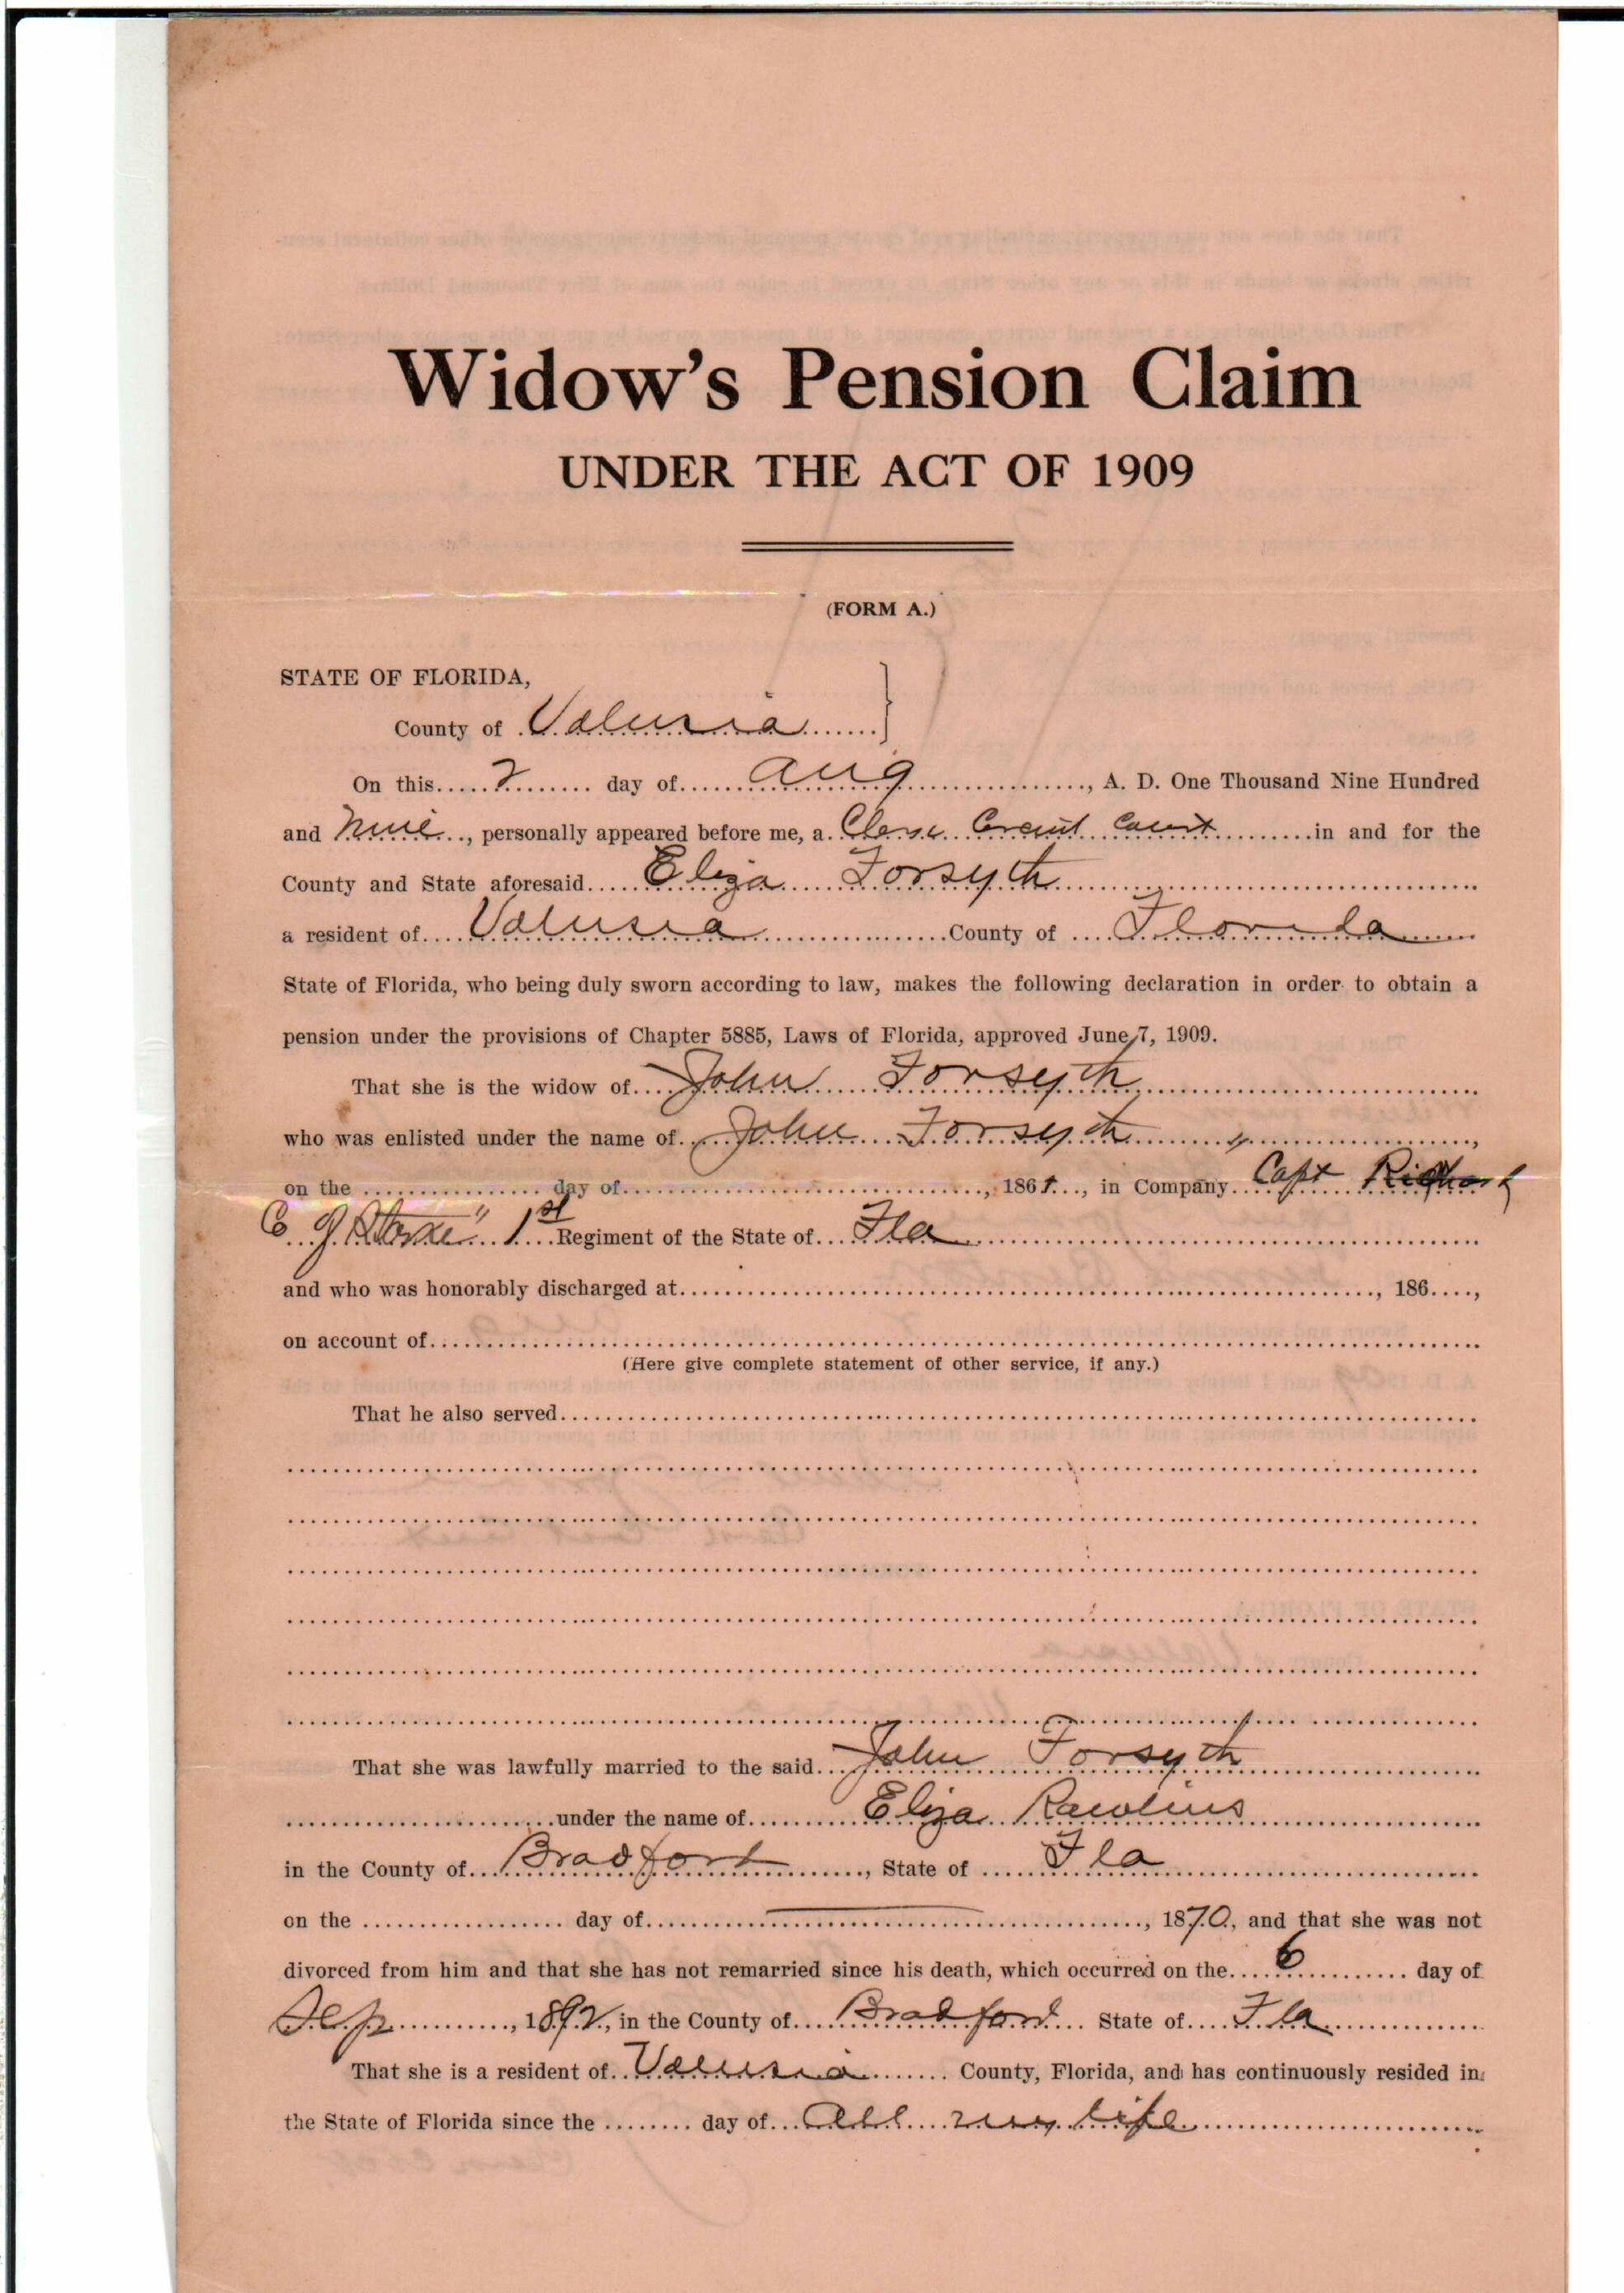 Widow's Pension Claim
UNDER THE ACT OF 1909
(FORM A.)
STATE OF FLORIDA,
County of Volusia
On this 2 day of Aug, A. D. One Thousand Nine Hundred
and Nine, personally appeared before me, a Clerk Circuit Court in and for the
County and State aforesaid Eliza Forsyth
a resident of Volusia County of Florida
State of Florida, who being duly sworn according to law, makes the following declaration in order to obtain a
pension under the provisions of Chapter 5885, Laws of Florida, approved June 7, 1909.
That she is the widow of John Forsyth
who was enlisted under the name of John Forsyth,
on the day of, 1861, in Company Capt
1st Regiment of the State of Fla
and who was honorably discharged at, 186,
on account of
(Here give complete statement of other service, if any.)
That he also served
That she was lawfully married to the said John Forsyth
under the name of Eliza Rawlins
in the County of Bradford, State of Fla
on the day of, 1870, and that she was not
divorced from him and that she has not remarried since his death, which occurred on the 6 day of
Sep, 1892, in the County of Bradford State of Fla
That she is a resident of Volusia County, Florida, and has continuously resided in
the State of Florida since the day of All my life